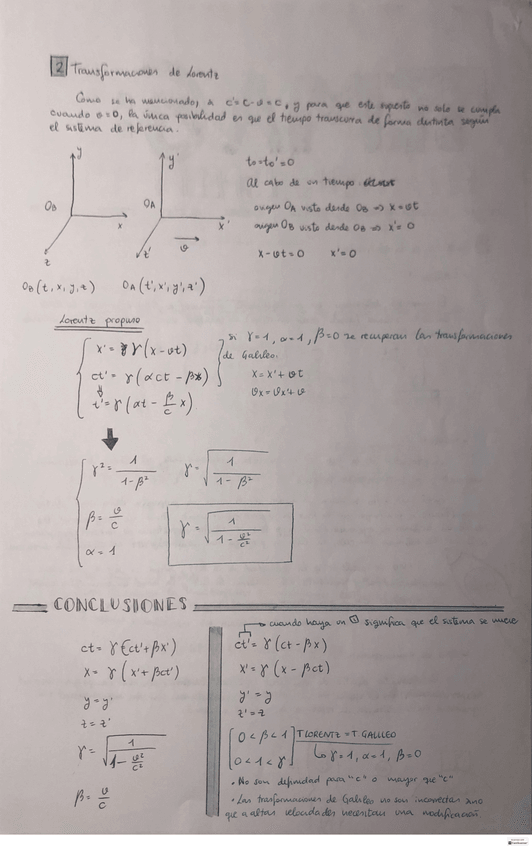 2 Transformaciones de Lorentz
Como se ha mencionado, a c'=c-v=c, y para que este supuesto no solo se cumpla
cuando v=0, la única posibilidad es que el tiempo transcurra de forma distinta según
el sistema de referencia.
y y' t₀=t₀'=0
Al cabo de un tiempo
O_B O_A origen O_A visto desde O_B ⇒ x=vt
x x' origen O_B visto desde O_B ⇒ x'=0
z z' v
x-vt=0 x'=0
O_B(t, x, y, z) O_A(t', x', y', z')
Lorentz propuso
Si γ=1, α=1, β=0 se recuperan las transformaciones
x'= γ(x-vt)
de Galileo.
ct'= γ(αct - βx)
x=x'+vt
t'=γ(αt - β/c x)
vx=vx'+v
γ²= 1/(1-β²) γ=√(1/(1-β²))
β= v/c
γ=√(1/(1-v²/c²))
α=1
CONCLUSIONES
cuando haya un ' significa que el sistema se mueve
ct= γ(ct'+βx') ct'= γ(ct-βx)
x= γ(x'+βct') x'=γ(x-βct)
y=y' y'=y
z=z' z'=z
γ=√(1/(1-v²/c²)) 0<β<1 T LORENTZ = T GALILEO
0<1<γ γ=1, α=1, β=0
β= v/c • No son definidas para "c" o mayor que "c"
• Las trasformaciones de Galileo no son incorrectas sino
que a altas velocidades necesitan una modificación.